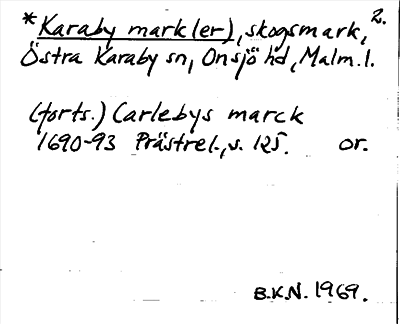 *Karaby mark(er), skogsmark, 2.
Östra Karaby sn, Onsjö hd, Malm. l.
(forts.) Carlebys marck
1690-93 Prästrel., s. 125. or.
B.K.N. 1969.